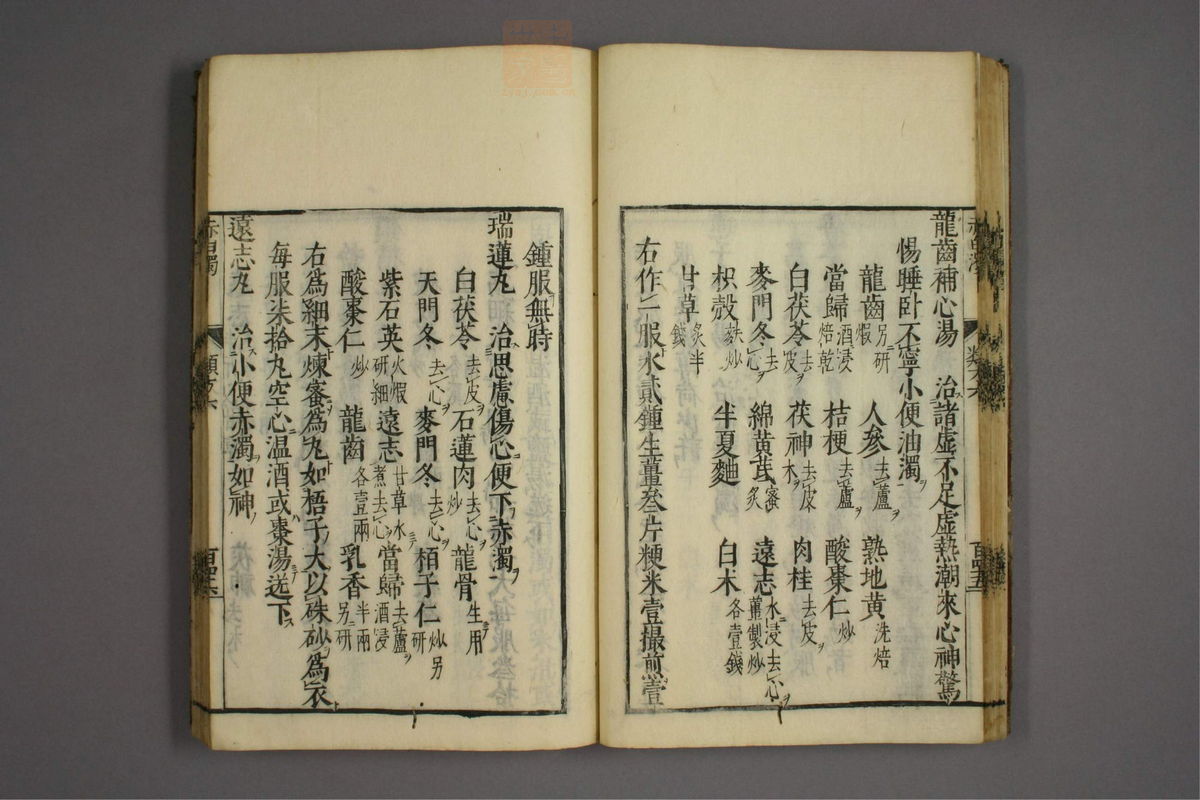 龍齒補心湯 治諸虛不足虛熱潮來心神驚
惕睡卧不寧小便油濁
龍齒另研煅 人參去蘆 熟地黃洗焙
當歸酒浸焙乾 桔梗去蘆 酸棗仁炒
白茯苓去皮 茯神去皮木 肉桂去皮
麥門冬去心 綿黃芪蜜炙 遠志水浸去心薑製炒
枳殼麩炒 半夏麯 白朮各壹錢
甘草炙半錢
右作二服水貳鍾生薑叁片粳米壹撮煎壹
鍾服無時
瑞蓮丸 治思慮傷心便下赤濁
白茯苓去皮 石蓮肉去心炒 龍骨生用
天門冬去心 麥門冬去心 栢子仁炒另研
紫石英火煅研細 遠志甘草水煮去心 當歸去蘆酒浸
酸棗仁炒 龍齒各壹兩 乳香半兩另研
右爲細末煉蜜爲丸如梧子大以硃砂爲衣
每服柒拾丸空心温酒或棗湯送下
遠志丸 治小便赤濁如神
赤白濁 類文六